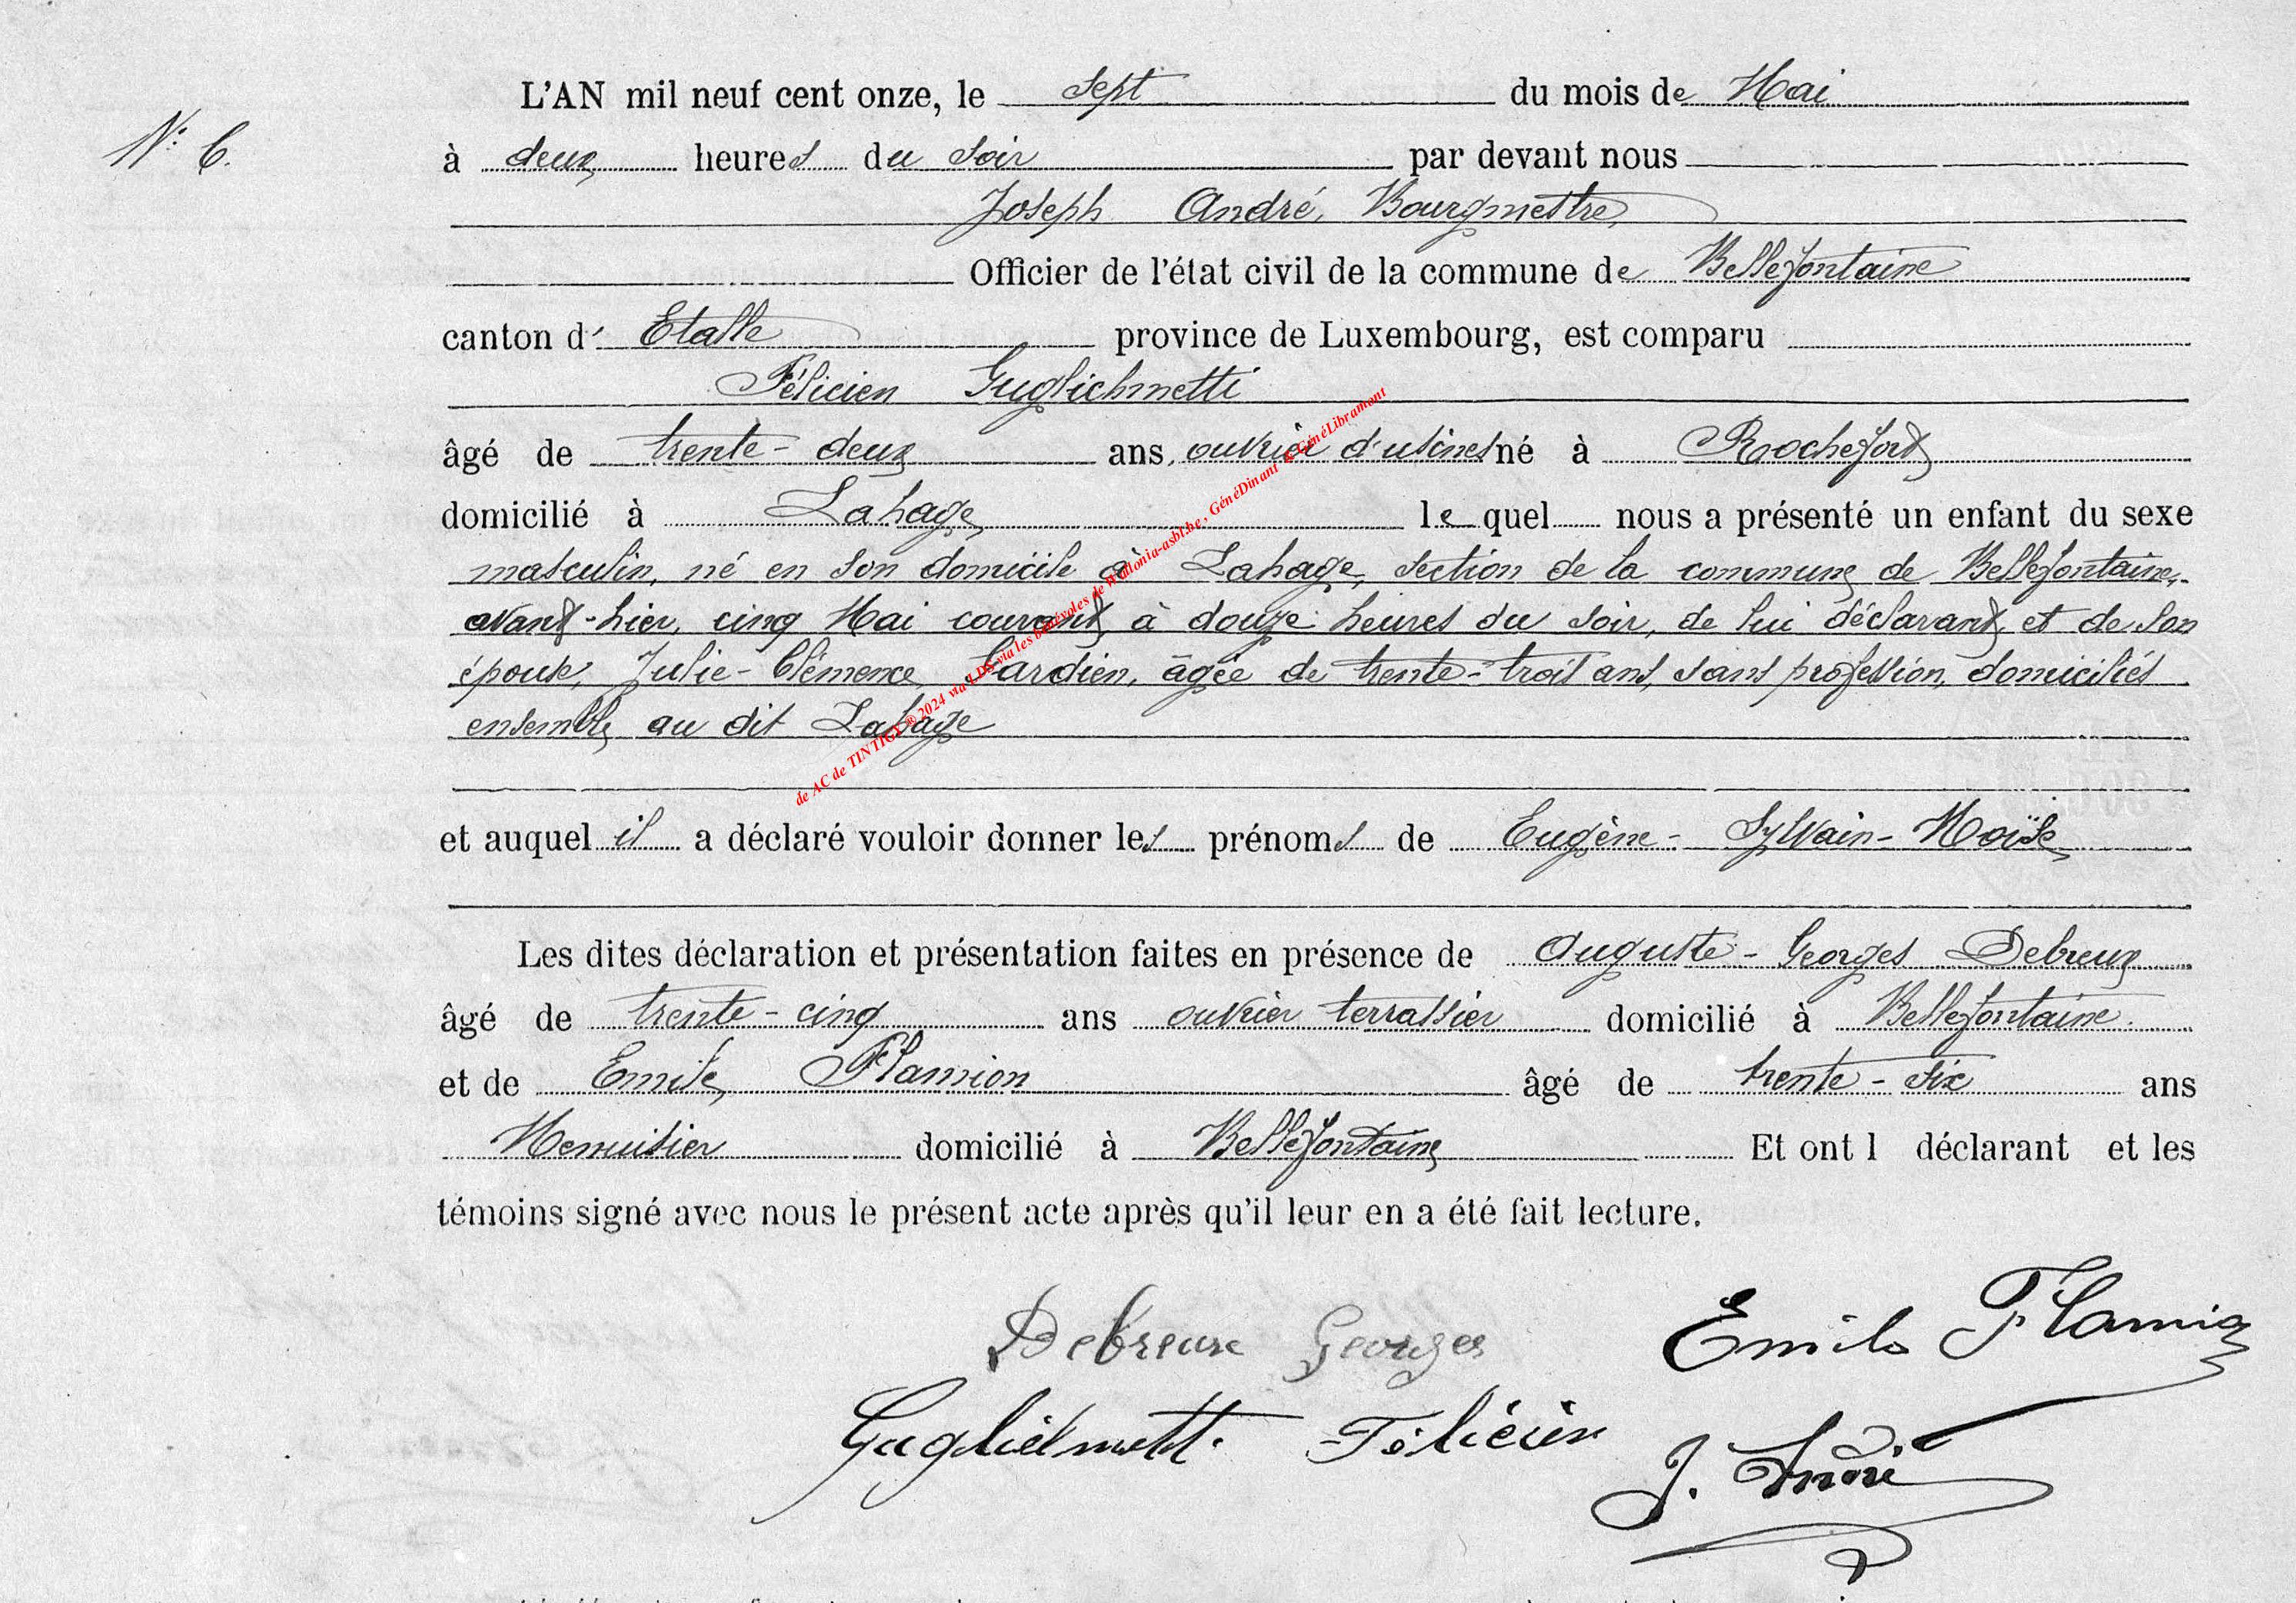 L'AN mil neuf cent onze, le sept du mois de Mai
N° 6.
à deux heures du soir par devant nous
Joseph André, Bourgmestre,
Officier de l'état civil de la commune de Bellefontaine
canton d' Etalle province de Luxembourg, est comparu
Félicien Guglichmetti
âgé de trente-deux ans, ouvrier d'usines né à Rochefort
domicilié à Lahage, lequel nous a présenté un enfant du sexe
masculin, né en son domicile à Lahage, section de la commune de Bellefontaine,
avant-hier, cinq Mai courant, à douze heures du soir, de lui déclarant, et de son
épouse, Julie-Clémence Tardien, âgée de trente-trois ans, sans profession, domiciliés
ensemble au dit Lahage
et auquel il a déclaré vouloir donner les prénoms de Eugène-Sylvain-Moïse
Les dites déclaration et présentation faites en présence de Auguste-Georges Debreux
âgé de trente-cinq ans ouvrier terrassier domicilié à Bellefontaine.
et de Emile Flamion âgé de trente-six ans
Menuisier domicilié à Bellefontaine Et ont l déclarant et les
témoins signé avec nous le présent acte après qu'il leur en a été fait lecture.
Debreux Georges Emile Flamion
Guglielmetti Félicien J. André
de AC de TINTIGY ® 2024 via LDS via les bénévoles de Wallonia-asbl.be, GénéDinant & GénéLibramont